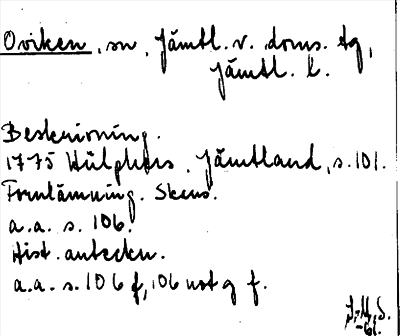 Oviken, sn, Jämtl. v. doms. tg,
Jämtl. l.
Beskrivning.
1775 Hülphers, Jämtland, s. 101.
Fornlämning. Skans.
a.a. s. 106.
Hist. anteckn.
a.a. s. 106 f, 106 not g f.
-61.